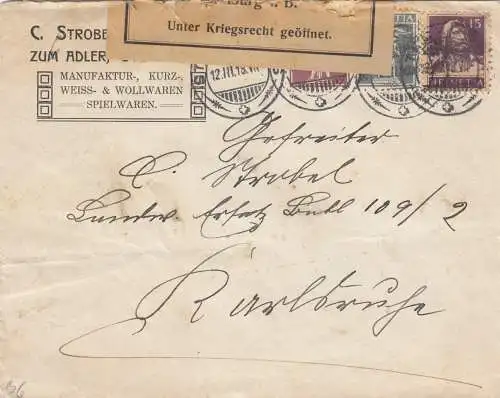 C. STROBE
ZUM ADLER,
MANUFAKTUR-, KURZ-,
WEISS- & WOLLWAREN
SPIELWAREN.
Unter Kriegsrecht geöffnet.
12.III.18.VII
15
Gefreiter
C. Strobel
Ersatz Batl 109/2
Karlsruhe